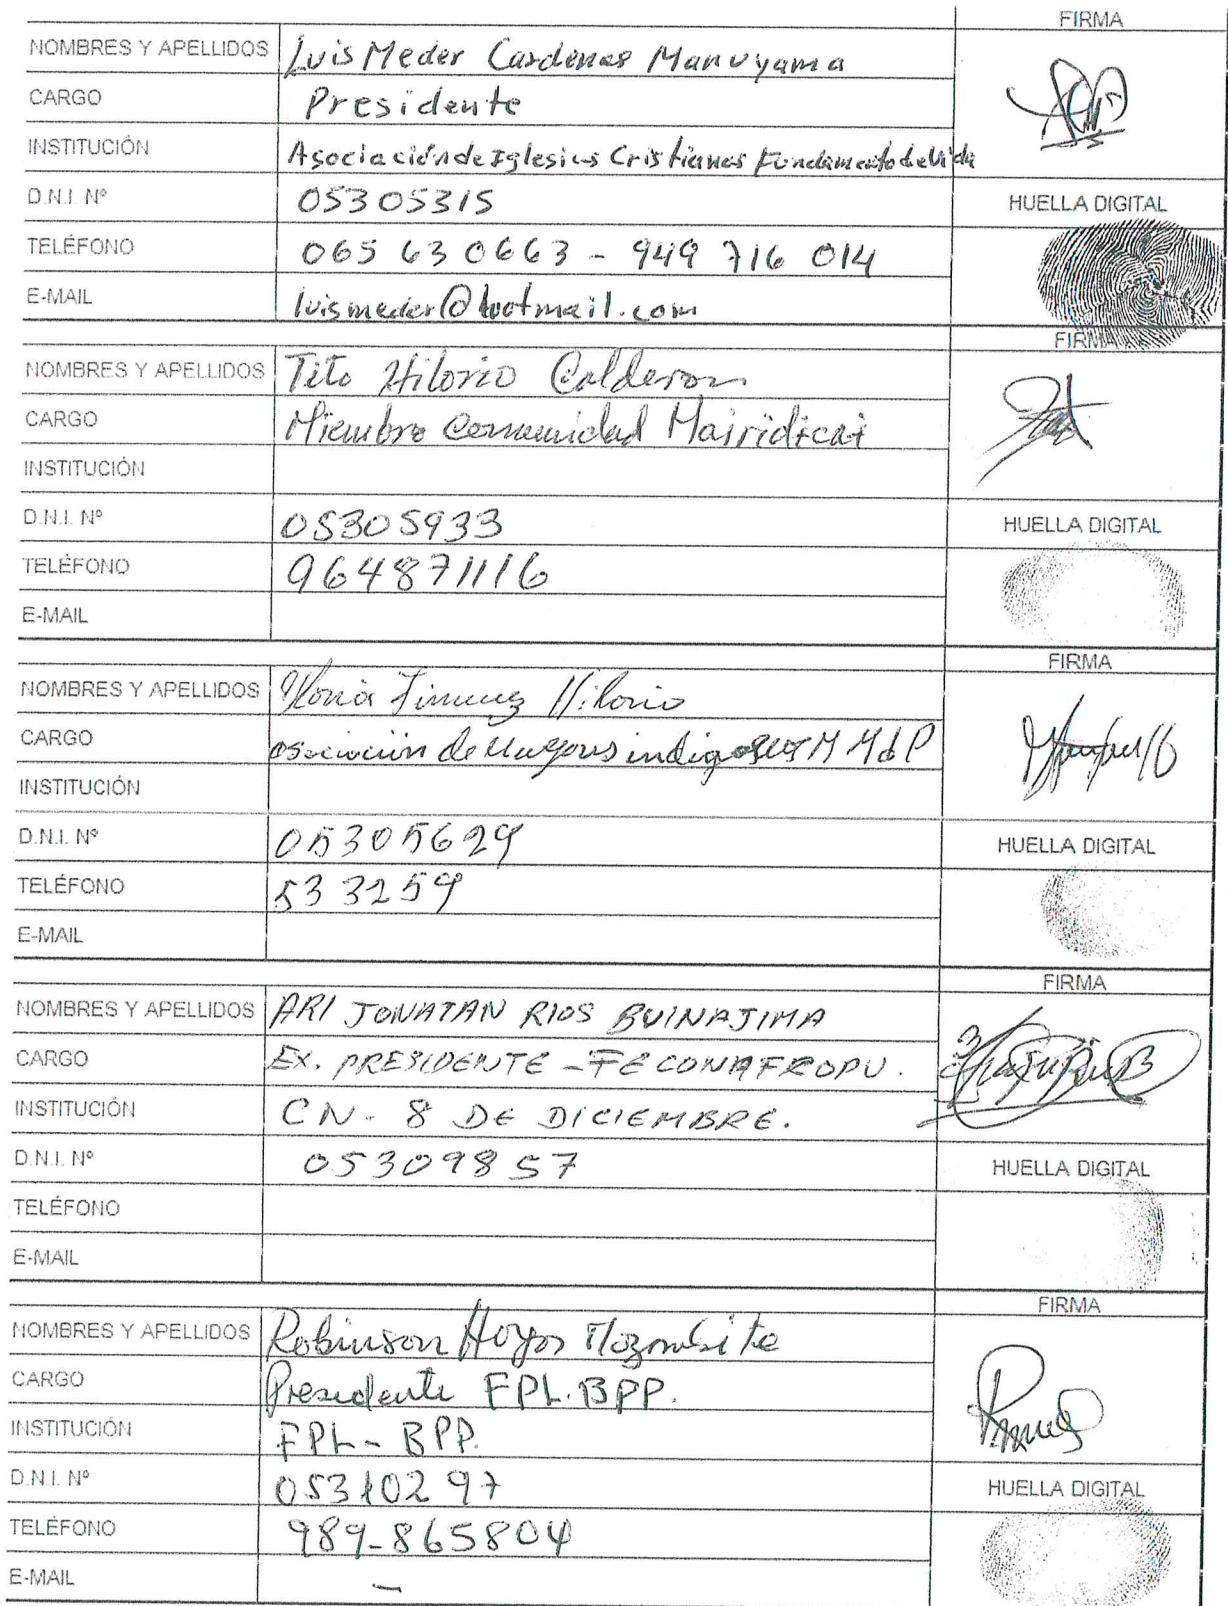 FIRMA
NOMBRES Y APELLIDOS Luis Meder Cardenas Manuyama
CARGO Presidente
INSTITUCIÓN Asociación de Iglesias Cristianas Fundamento de Vida
D.N.I. Nº 05305315
HUELLA DIGITAL
TELÉFONO 065 630663 - 949 716 014
E-MAIL luismeder@hotmail.com
FIRMA
NOMBRES Y APELLIDOS Tito Hilorio Calderon
CARGO Miembro Comunidad Mairidicai
INSTITUCIÓN
D.N.I. Nº 05305933
HUELLA DIGITAL
TELÉFONO 964871116
E-MAIL
FIRMA
NOMBRES Y APELLIDOS
CARGO asociación de indigenas
INSTITUCIÓN
D.N.I. Nº 05305629
HUELLA DIGITAL
TELÉFONO 533259
E-MAIL
FIRMA
NOMBRES Y APELLIDOS ARI JONATAN RIOS BUINAJIMA
CARGO EX. PRESIDENTE - FECONAFROPU.
INSTITUCIÓN CN - 8 DE DICIEMBRE.
D.N.I. Nº 05309857
HUELLA DIGITAL
TELÉFONO
E-MAIL
FIRMA
NOMBRES Y APELLIDOS Robinson Hoyos Mozombite
CARGO Presidente FPL.BPP.
INSTITUCIÓN FPL - BPP.
D.N.I. Nº 05310297
HUELLA DIGITAL
TELÉFONO 989-865804
E-MAIL -